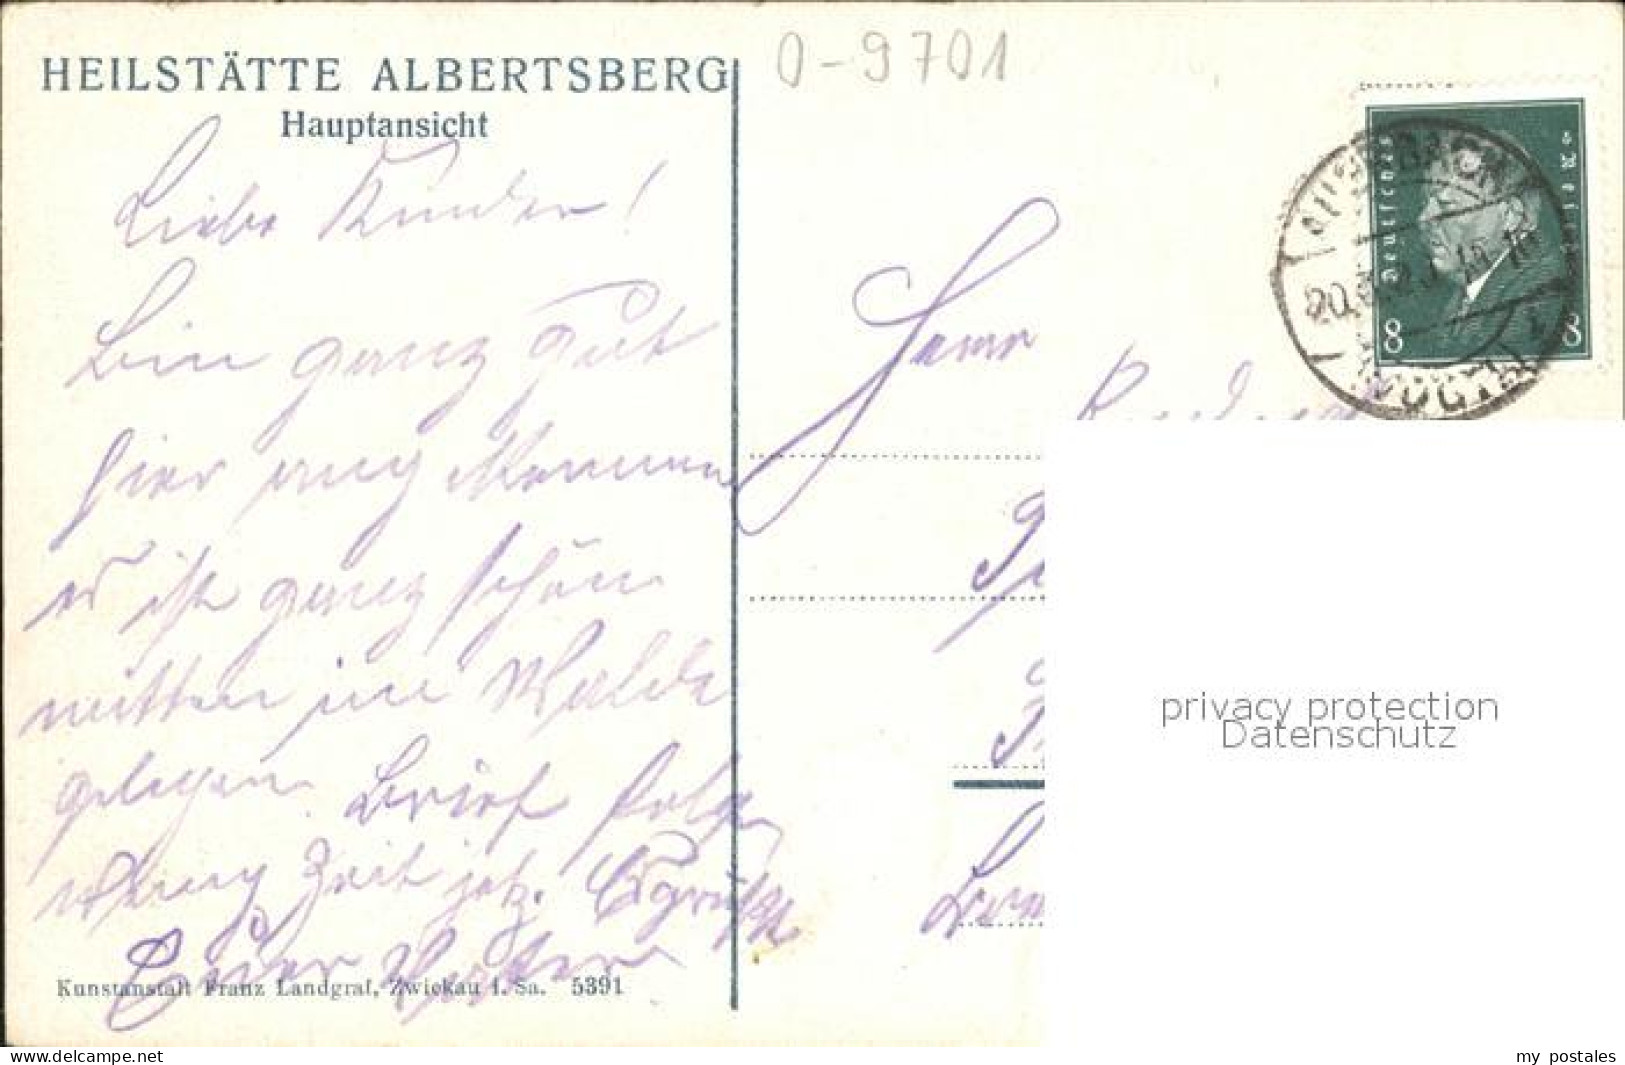 HEILSTÄTTE ALBERTSBERG
Hauptansicht
0-9701
Liebe Kinder!
Bin ganz gut
hier
es ist ganz schön
mitten im Walde
gelegen. Brief folgt
wenig Zeit jetz. Es grüßt
Euer Vater
Kunstanstalt Franz Landgraf, Zwickau i. Sa. 5391
Herrn
Deutsches Reich
8 8
privacy protection
Datenschutz
www.delcampe.net
my postales